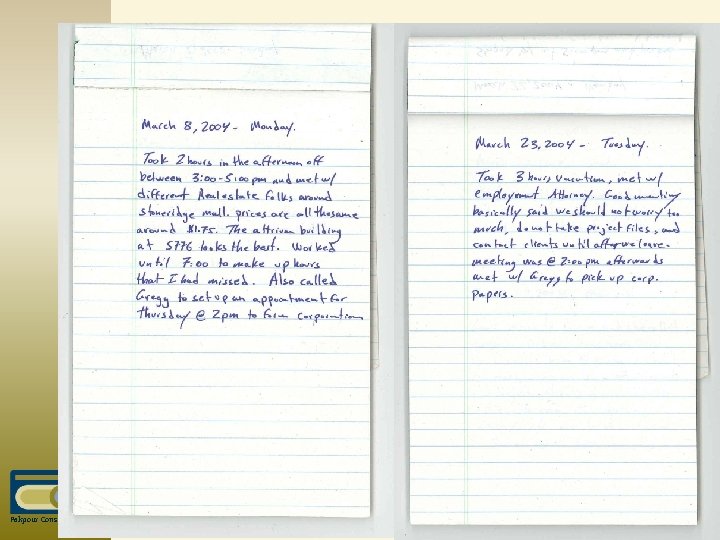 March 8, 2004 - Monday.
Took 2 hours in the afternoon off
between 3:00-5:00 pm and met w/
different Real estate folks around
stoneridge mall. prices are all the same
around $1.75. The attrium building
at 5776 looks the best. Worked
until 7:00 to make up hours
that I had missed. Also called
Gregg to set up an appointment for
Thursday @ 2pm to form corporation
March 23, 2004 - Tuesday.
Took 3 hours vacation, met w/
employment Attorney. Good meeting
basically said we should not worry too
much, do not take project files, and
contact clients until after we leave.
meeting was @ 2:00 pm afterwards
met w/ Gregg to pick up corp.
papers.
Pakpour Cons